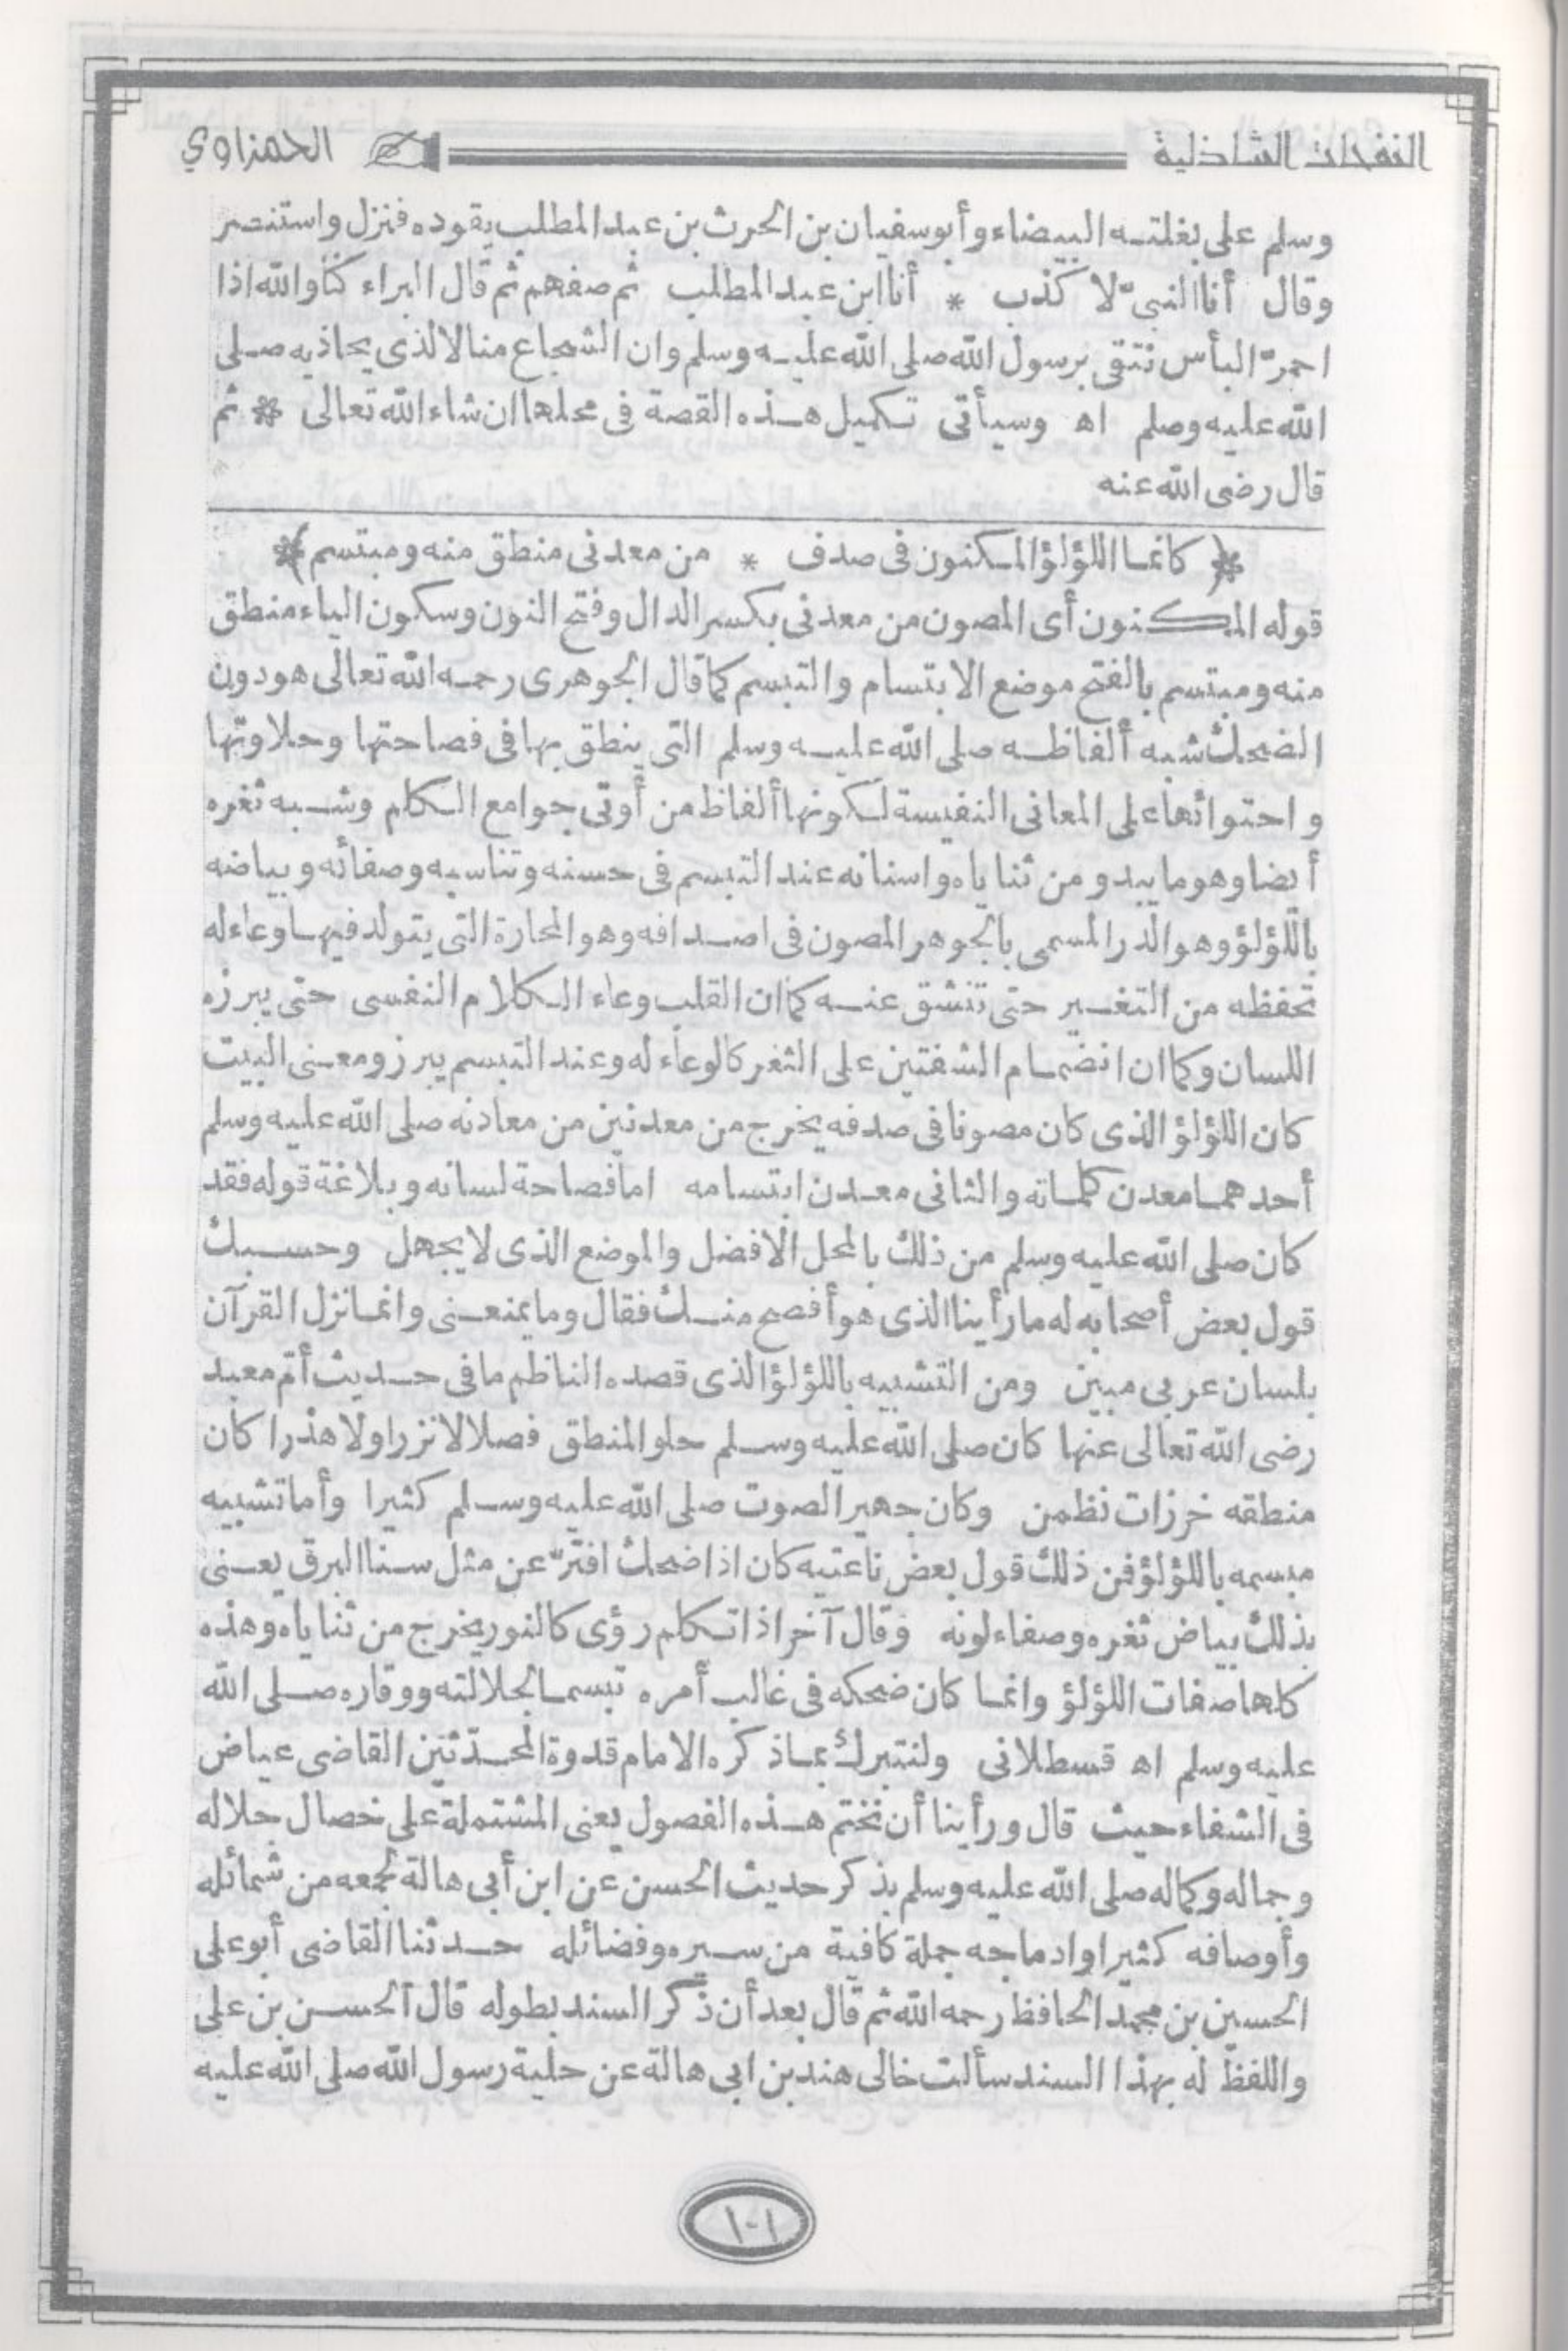 النفحات الشاذلية الحمزاوي
وسلم على بغلته البيضاء وأبو سفيان بن الحرث بن عبد المطلب يقوده فنزل واستنصر
وقال أنا النبىّ لا كذب * أنا ابن عبد المطلب ثم صفهم ثم قال البراء كنا والله اذا
احمرّ البأس نتقى برسول الله صلى الله عليه وسلم وان الشجاع منا لالذى يحاذيه صلى
الله عليه وصلم اه وسيأتى تكميل هذه القصة فى محلها ان شاء الله تعالى * ثم
قال رضى الله عنه
* كانما اللؤلؤ المكنون فى صدف * من معدنى منطق منه ومبتسم *
قوله المكنون أى المصون من معدنى بكسر الدال وفتح النون وسكون الياء منطق
منه ومبتسم بالفتح موضع الابتسام والتبسم كما قال الجوهرى رحمه الله تعالى هو دون
الضحك شبه ألفاظه صلى الله عليه وسلم التى ينطق بها فى فصاحتها وحلاوتها
واحتوائها على المعانى النفيسة لكونها ألفاظ من أوتى جوامع الكلم وشبه ثغره
أيضا وهو ما يبدو من ثناياه واسنانه عند التبسم فى حسنه وتناسبه وصفائه وبياضه
باللؤلؤ وهو الدر المسمى بالجوهر المصون فى اصدافه وهو المحارة التى يتولد فيها وعاء له
تحفظه من التغيير حتى تنشق عنه كما ان القلب وعاء الكلام النفسى حتى يبرزه
اللسان وكما ان انضمام الشفتين على الثغر كالوعاء له وعند التبسم يبرز ومعنى البيت
كان اللؤلؤ الذى كان مصونا فى صدفه يخرج من معدنين من معادنه صلى الله عليه وسلم
أحدهما معدن كلماته والثانى معدن ابتسامه اما فصاحة لسانه وبلاغة قوله فقد
كان صلى الله عليه وسلم من ذلك بالمحل الافضل والموضع الذى لا يجهل وحسبك
قول بعض أصحابه له ما رأينا الذى هو أفصح منك فقال وما يمنعنى وانما نزل القرآن
بلسان عربى مبين ومن التشبيه باللؤلؤ الذى قصده الناظم ما فى حديث أمّ معبد
رضى الله تعالى عنها كان صلى الله عليه وسلم حلو المنطق فصلا لا نزرا ولا هذرا كان
منطقه خرزات نظمن وكان جهير الصوت صلى الله عليه وسلم كثيرا وأما تشبيه
مبسمه باللؤلؤ فمن ذلك قول بعض ناعتيه كان اذا ضحك افترّ عن مثل سنا البرق يعنى
بذلك بياض ثغره وصفاء لونه وقال آخر اذا تكلم رؤى كالنور يخرج من ثناياه وهذه
كلها صفات اللؤلؤ وانما كان ضحكه فى غالب أمره تبسما لجلالته ووقاره صلى الله
عليه وسلم اه قسطلانى ولنتبرك بما ذكره الامام قدوة المحدّثين القاضى عياض
فى الشفاء حيث قال ورأينا أن نختم هذه الفصول يعنى المشتملة على خصال جلاله
وجماله وكماله صلى الله عليه وسلم بذكر حديث الحسن عن ابن أبى هالة لجمعه من شمائله
وأوصافه كثيرا وادماجه جملة كافية من سيره وفضائله حدثنا القاضى أبو على
الحسين بن محمد الحافظ رحمه الله ثم قال بعد أن ذكر السند بطوله قال الحسن بن على
واللفظ له بهذا السند سألت خالى هند بن ابى هالة عن حلية رسول الله صلى الله عليه
١٠١